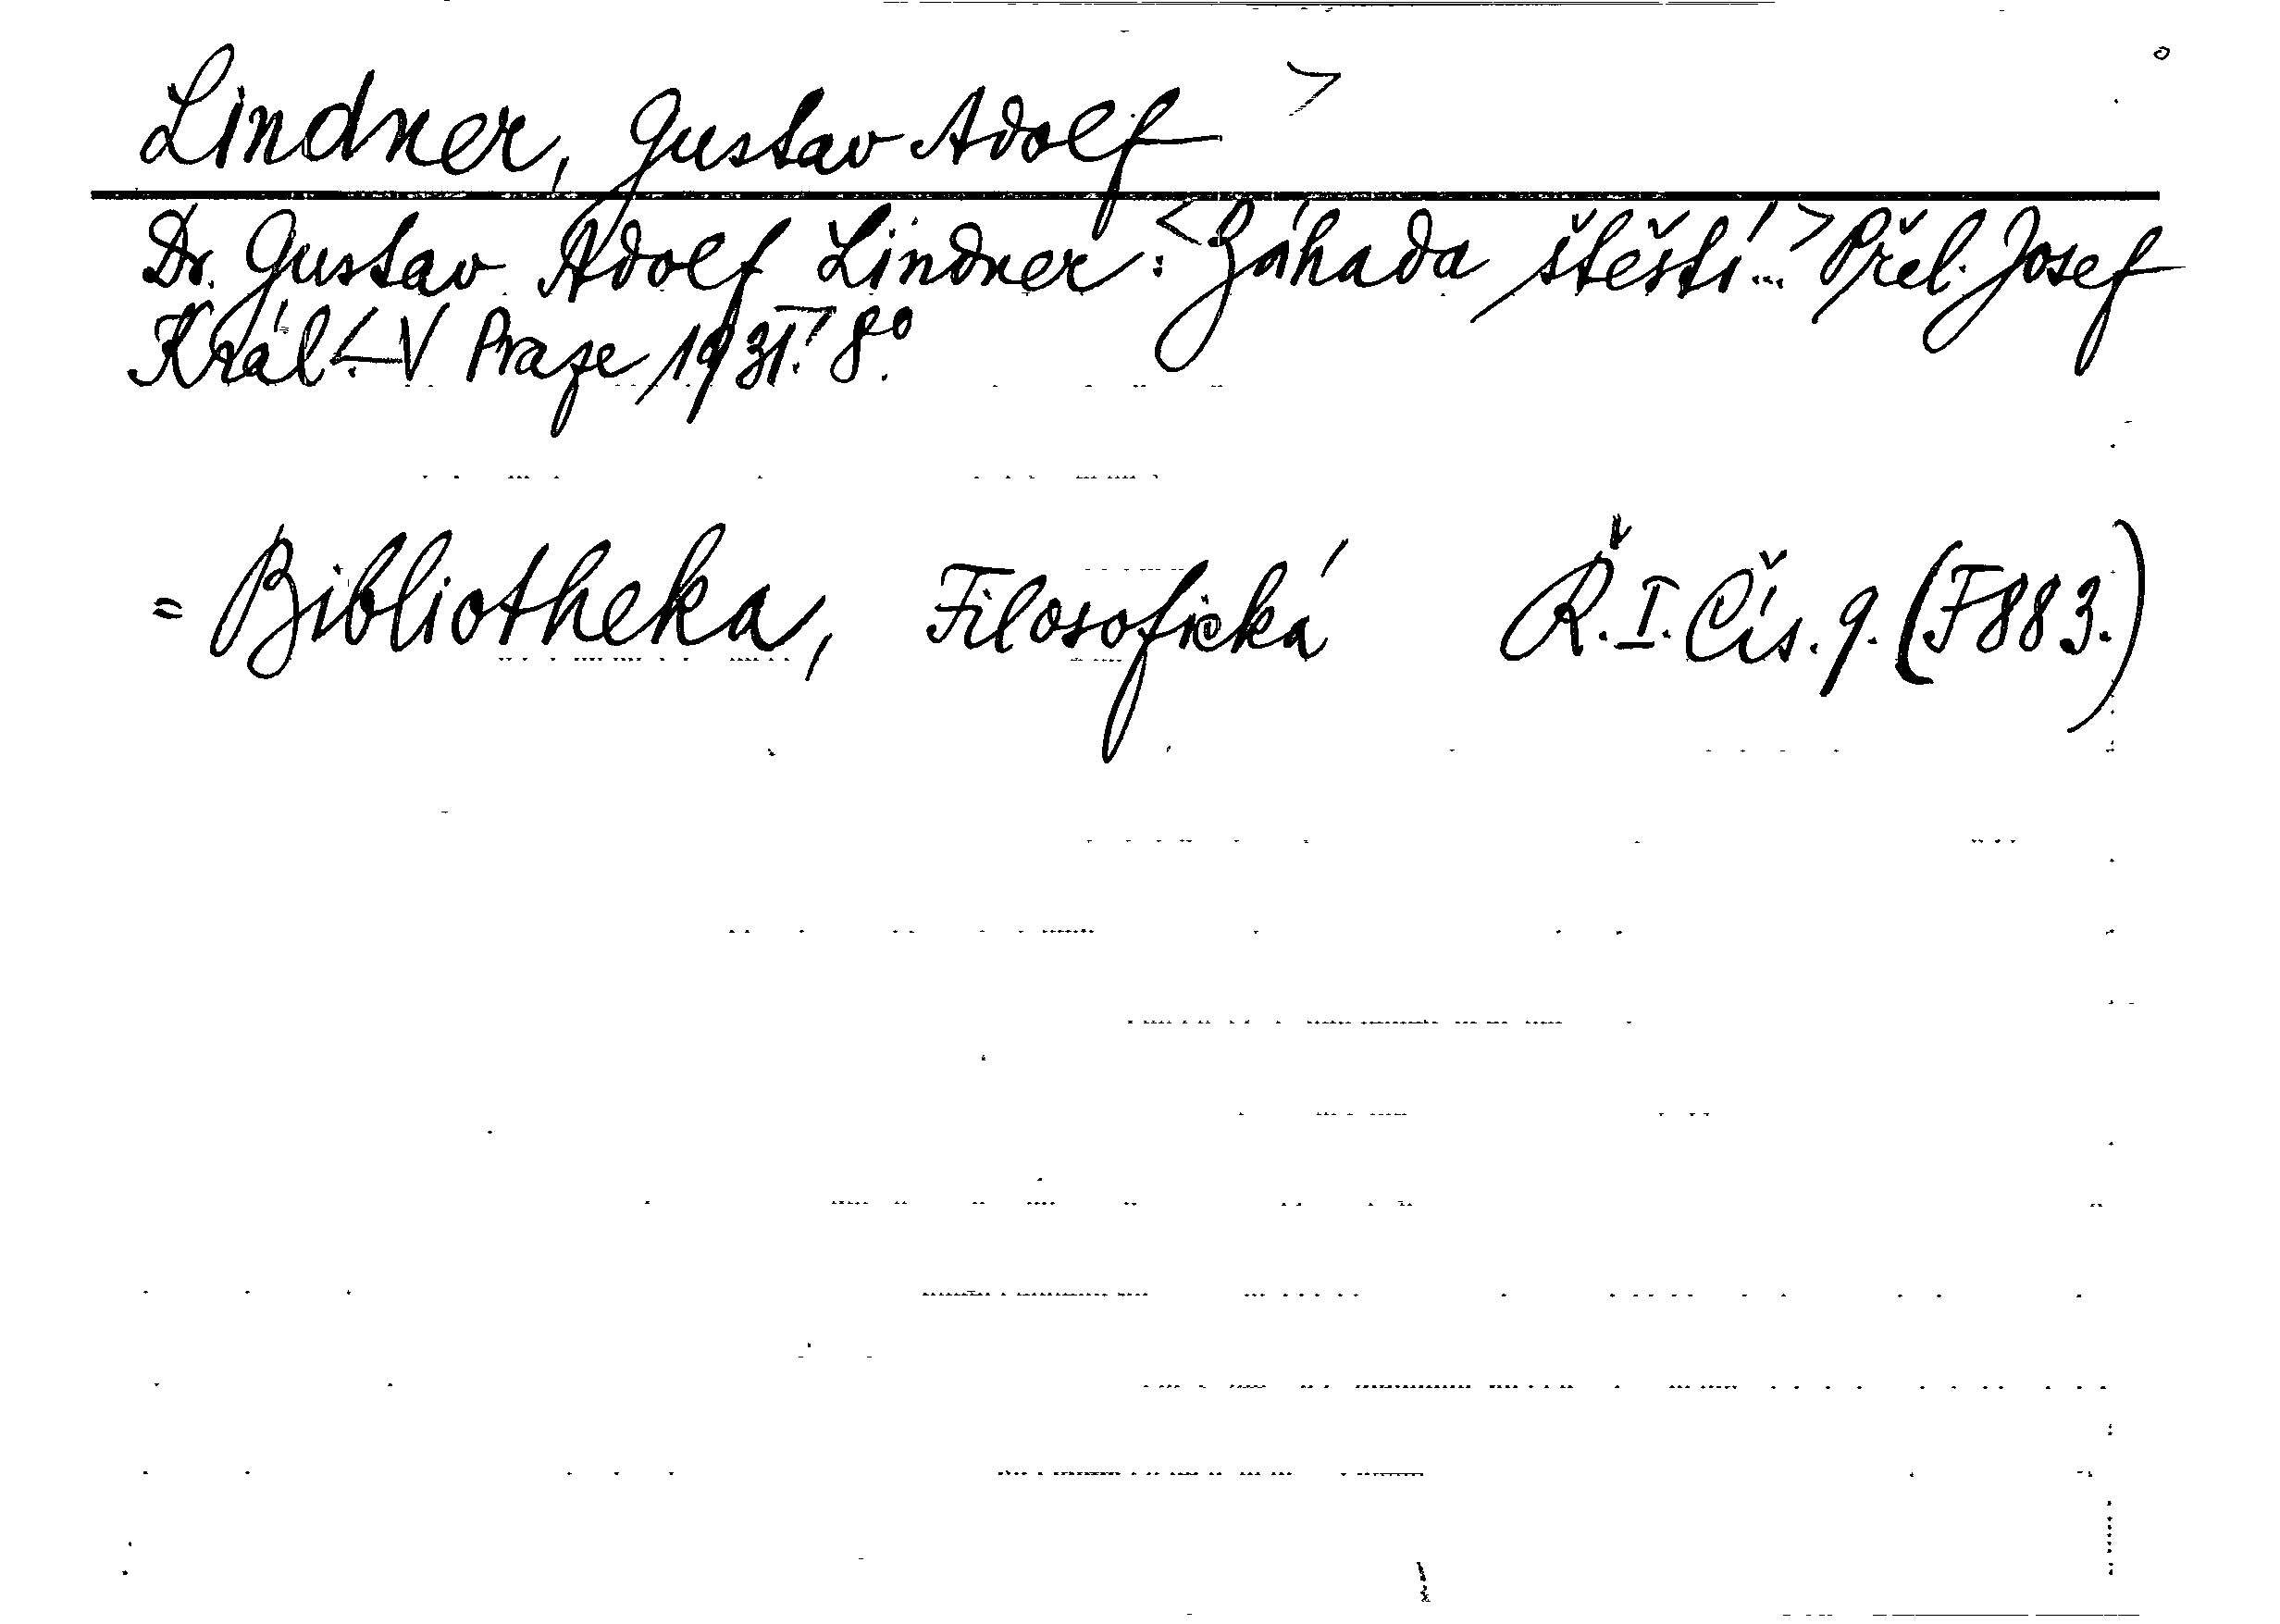 Lindner, Gustav Adolf >
Dr. Gustav Adolf Lindner: <Záhada štěstí...> Přel. Josef
Král. <V Praze 1931.> 8°.
= Bibliotheka, Filosofická Ř. I. Čís. 9. (F 883.)